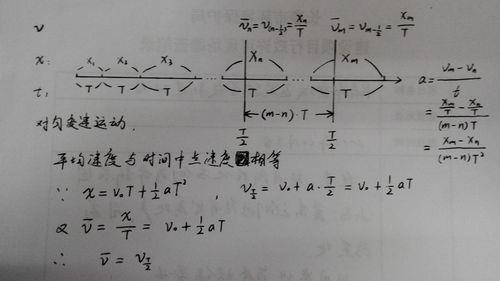 v  v̄ₙ=v₍ₙ₋½₎=xₙ/T  v̄ₘ=vₘ₋½=xₘ/T
x:  x₁  x₂  x₃  …  xₙ  …  xₘ
t:  T  T  T  …  T  …  T
(m-n)·T
T/2  T/2
a = (vₘ-vₙ)/t
= (xₘ/T - xₙ/T)/((m-n)T)
= (xₘ-xₙ)/((m-n)T²)
对匀变速运动,
平均速度与时间中点速度相等
∵ x=v₀T+½aT² , v_{T/2}=v₀+a·T/2=v₀+½aT
又 v̄=x/T=v₀+½aT
∴ v̄=v_{T/2}